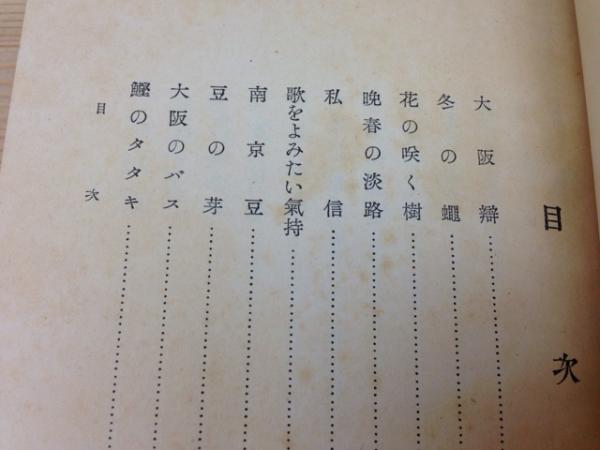 目次
大阪辯
冬の蠅
花の咲く樹
晩春の淡路
私信
歌をよみたい氣持
南京豆
豆の芽
大阪のバス
鰹のタタキ
目次